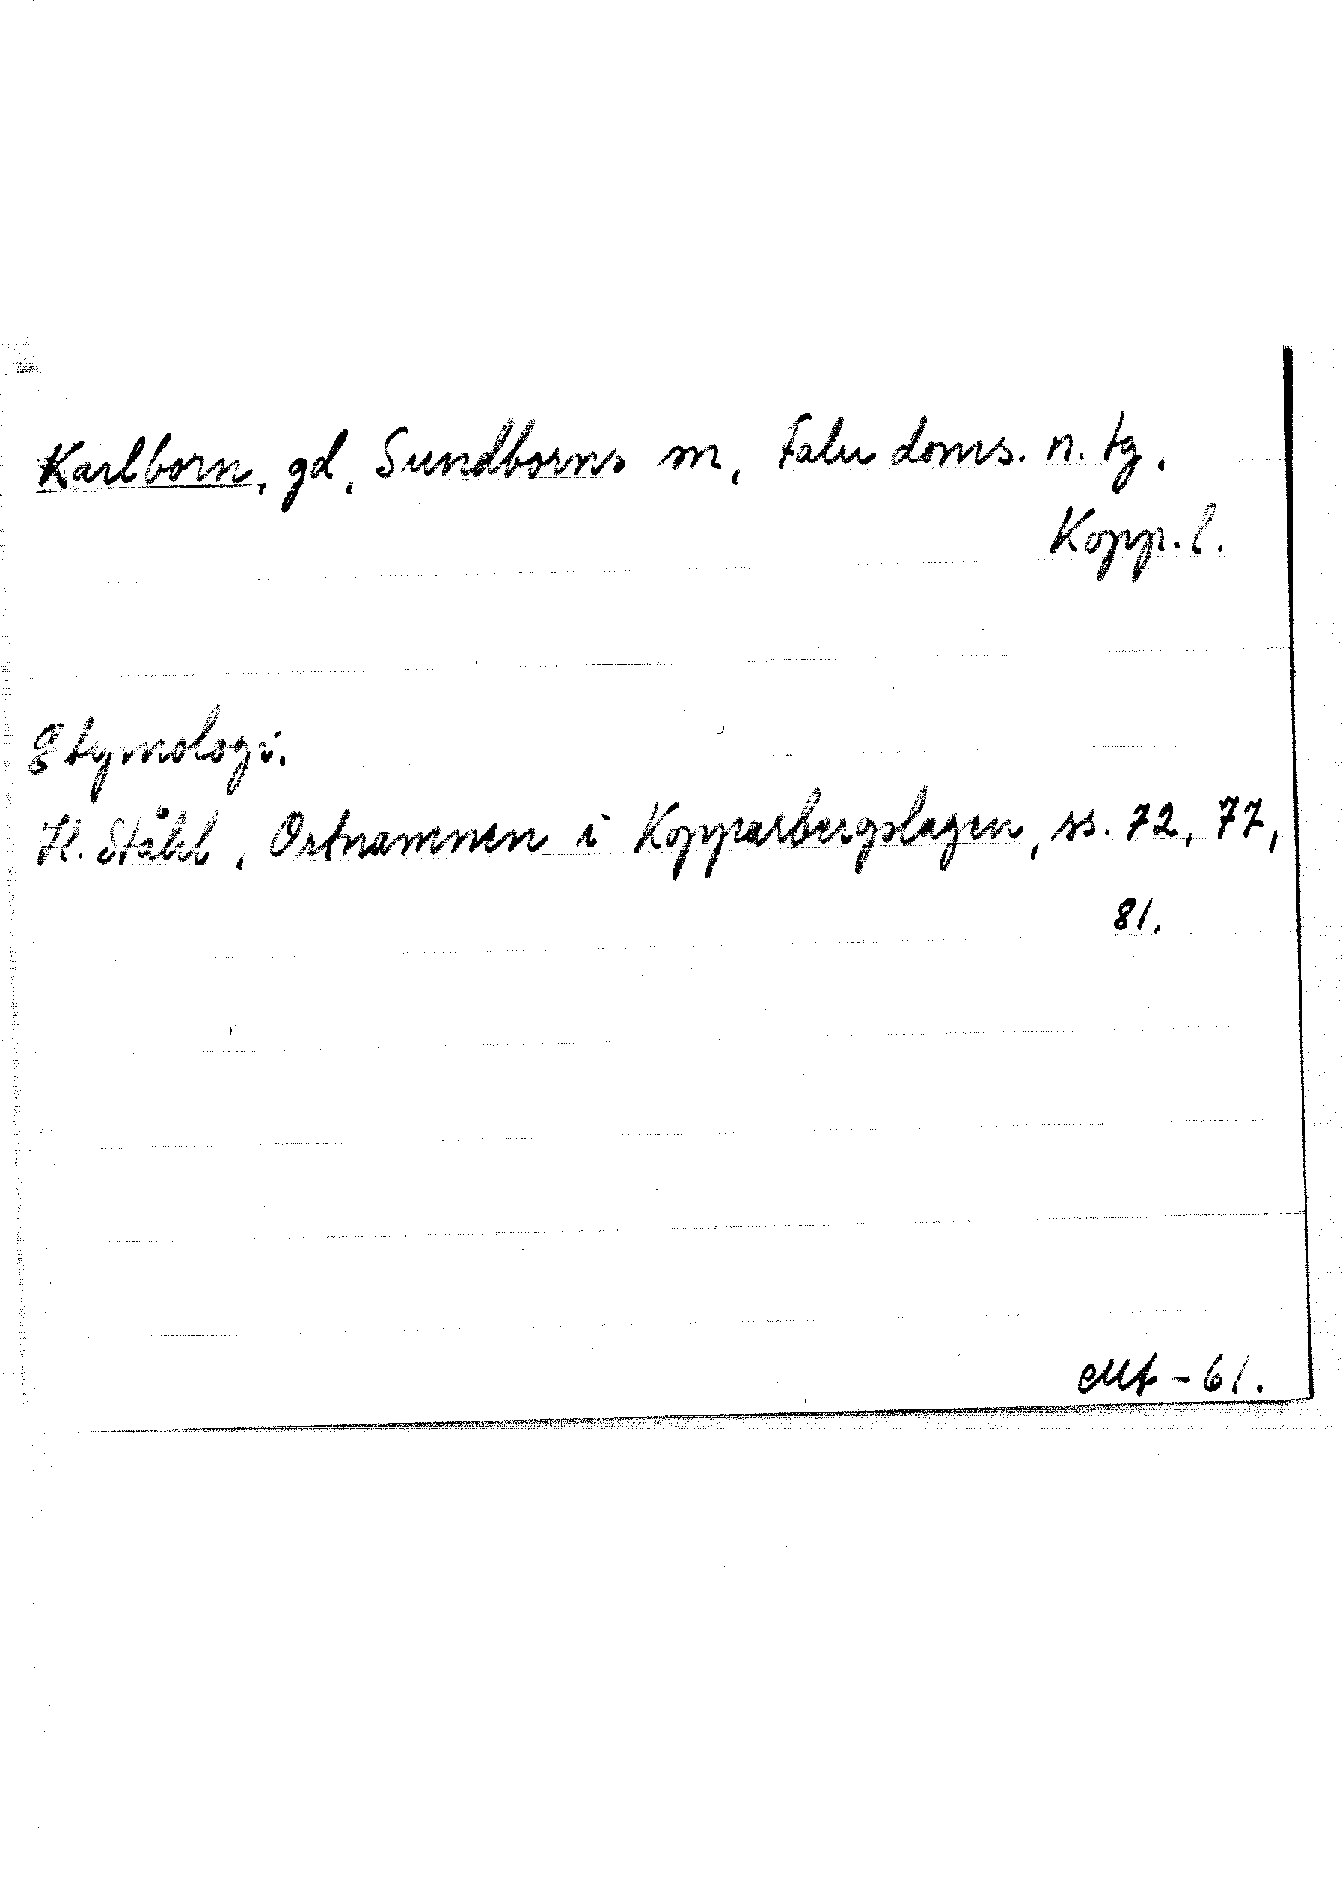 Karlborn, gd, Sundborns sn, Falu doms. n. tg.
Kopp. l.
Etymologi.
H. Ståhl, Ortnamnen i Kopparbergslagen, ss. 72, 77,
81.
-61.